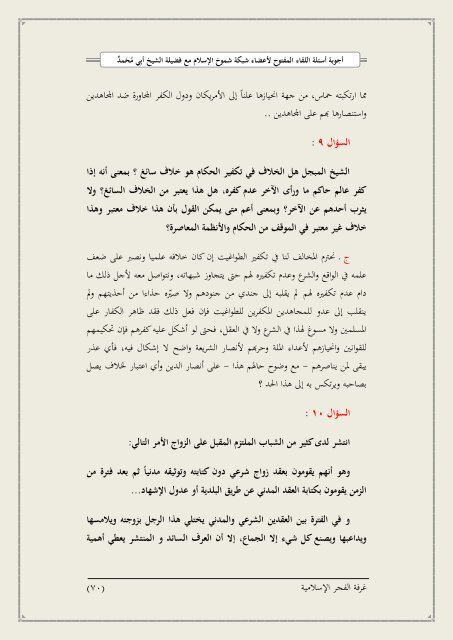 أجوبة أسئلة اللقاء المفتوح لأعضاء شبكة شموخ الإسلام مع فضيلة الشيخ أبي مُحمدٌ
مما ارتكبته حماس، من جهة انحيازها علناً إلى الأمريكان ودول الكفر المجاورة ضد المجاهدين
واستنصارها بهم على المجاهدين ..
السؤال ٩ :
الشيخ المبجل هل الخلاف في تكفير الحكام هو خلاف سائغ ؟ بمعنى أنه إذا
كفر عالم حاكم ما ورأى الآخر عدم كفره، هل هذا يعتبر من الخلاف السائغ؟ ولا
يثرب أحدهم عن الآخر؟ وبمعنى أعم متى يمكن القول بأن هذا خلاف معتبر وهذا
خلاف غير معتبر في الموقف من الحكام والأنظمة المعاصرة؟
ج . نحترم المخالف لنا في تكفير الطواغيت إن كان خلافه علميا ونصبر على ضعف
علمه في الواقع والشرع وعدم تكفيره لهم حتى يتجاوز شبهاته، ونتواصل معه لأجل ذلك ما
دام عدم تكفيره لهم لم يقلبه إلى جندي من جنودهم ولا صيّره حذاءا من أحذيتهم ولم
ينقلب إلى عدو للمجاهدين المكفرين للطواغيت فإن فعل ذلك فقد ظاهر الكفار على
المسلمين ولا مسوغ لهذا في الشرع ولا في العقل، فحتى لو أشكل عليه كفرهم فإن تحكيمهم
للقوانين وانحيازهم لأعداء الملة وحربهم لأنصار الشريعة واضح لا إشكال فيه، فأي عذر
يبقى لمن يناصرهم – مع وضوح حالهم هذا – على أنصار الدين وأي اعتبار لخلاف يصل
بصاحبه ويرتكس به إلى هذا الحد ؟
السؤال ١٠ :
انتشر لدى كثير من الشباب الملتزم المقبل على الزواج الأمر التالي:
وهو أنهم يقومون بعقد زواج شرعي دون كتابته وتوثيقه مدنياً ثم بعد فترة من
الزمن يقومون بكتابة العقد المدني عن طريق البلدية أو عدول الإشهاد...
و في الفترة بين العقدين الشرعي والمدني يختلي هذا الرجل بزوجته ويلامسها
ويداعبها ويصنع كل شيء إلا الجماع، إلا أن العرف السائد و المنتشر يعطي أهمية
غرفة الفجر الإسلامية
(٧٠)